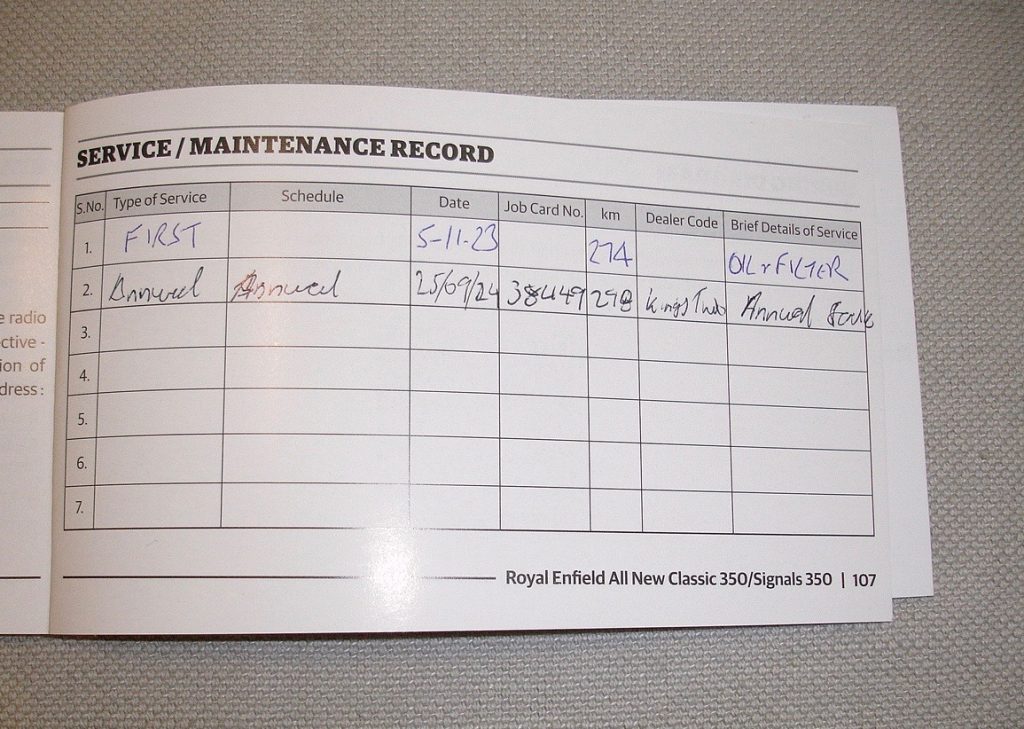 e radio
ctive -
ion of
dress :
SERVICE / MAINTENANCE RECORD
S.No. Type of Service Schedule Date Job Card No. km Dealer Code Brief Details of Service
1. FIRST 5-11-23 274 OIL & FILTER
2. Annual Annual 25/09/24 298 Kings Annual
3.
4.
5.
6.
7.
Royal Enfield All New Classic 350/Signals 350 | 107